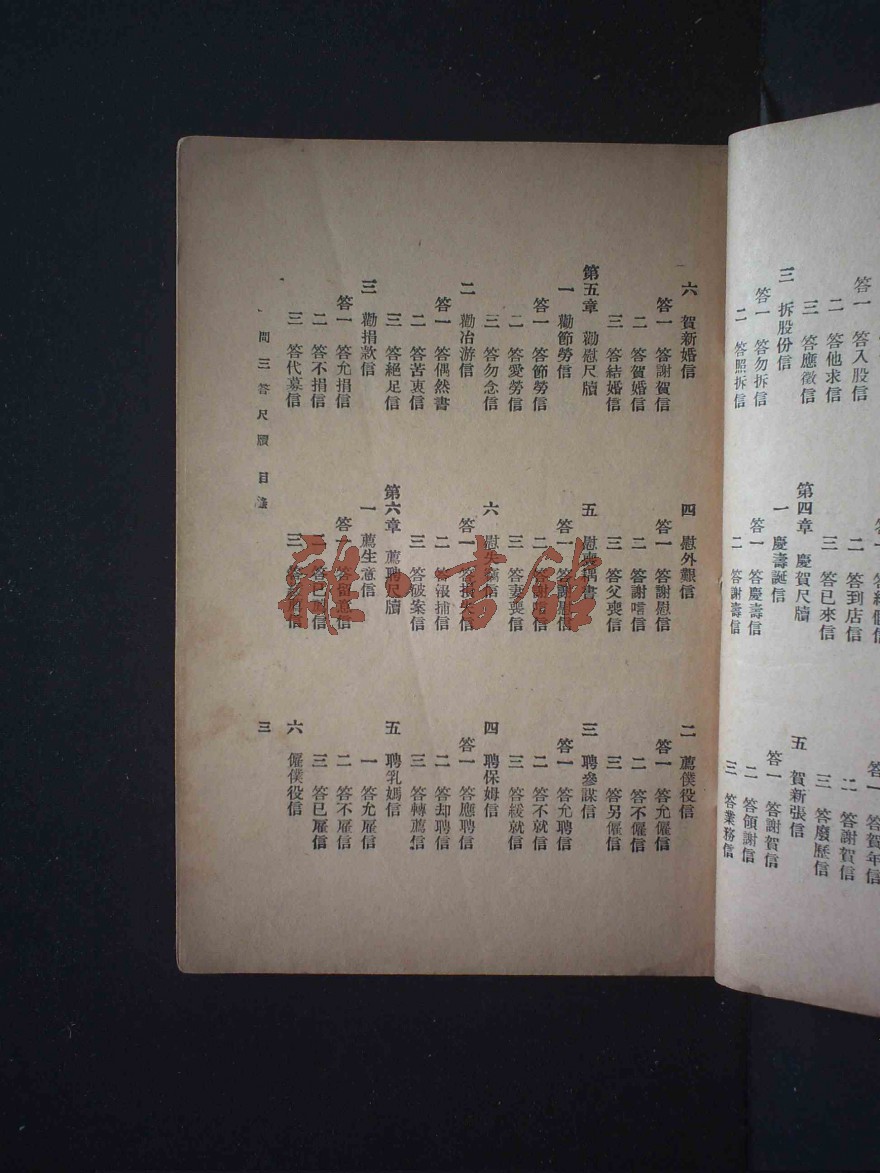 五 賀新張信
答一 答謝賀信
二 答領謝信
三 答業務信
第四章 慶賀尺牘
一 慶壽誕信
答一 答慶壽信
二 答謝壽信
二 答到店信
三 答已來信
答一 答賀年信
二 答謝賀信
三 答廢歷信
答一 答入股信
二 答他求信
三 答應徵信
三 拆股份信
答一 答勿拆信
二 答照拆信
六 賀新婚信
答一 答謝賀信
二 答賀婚信
三 答結婚信
第五章 勸慰尺牘
一 勸節勞信
答一 答節勞信
二 答愛勞信
三 答勿念信
二 勸冶游信
答一 答偶然書
二 答苦衷信
三 答絕足信
三 勸捐款信
答一 答允捐信
二 答不捐信
三 答代募信
四 慰外艱信
答一 答謝慰信
二 答謝唁信
三 答父喪信
五 慰喪耦書
答一 答謝慰信
二 答謝唁信
三 答妻喪信
六 慰失竊信
答一 答損失信
二 答報捕信
三 答破案信
第六章 薦聘尺牘
一 薦生意信
答一 答留意信
二 答已
三 答
二 薦僕役信
答一 答允僱信
二 答不僱信
三 答另僱信
三 聘參謀信
答一 答允聘信
二 答不就信
三 答緩就信
四 聘保姆信
答一 答應聘信
二 答却聘信
三 答轉薦信
五 聘乳媽信
一 答允雇信
二 答不雇信
三 答已雇信
六 僱僕役信
一問三答尺牘 目錄
三
雅 書館